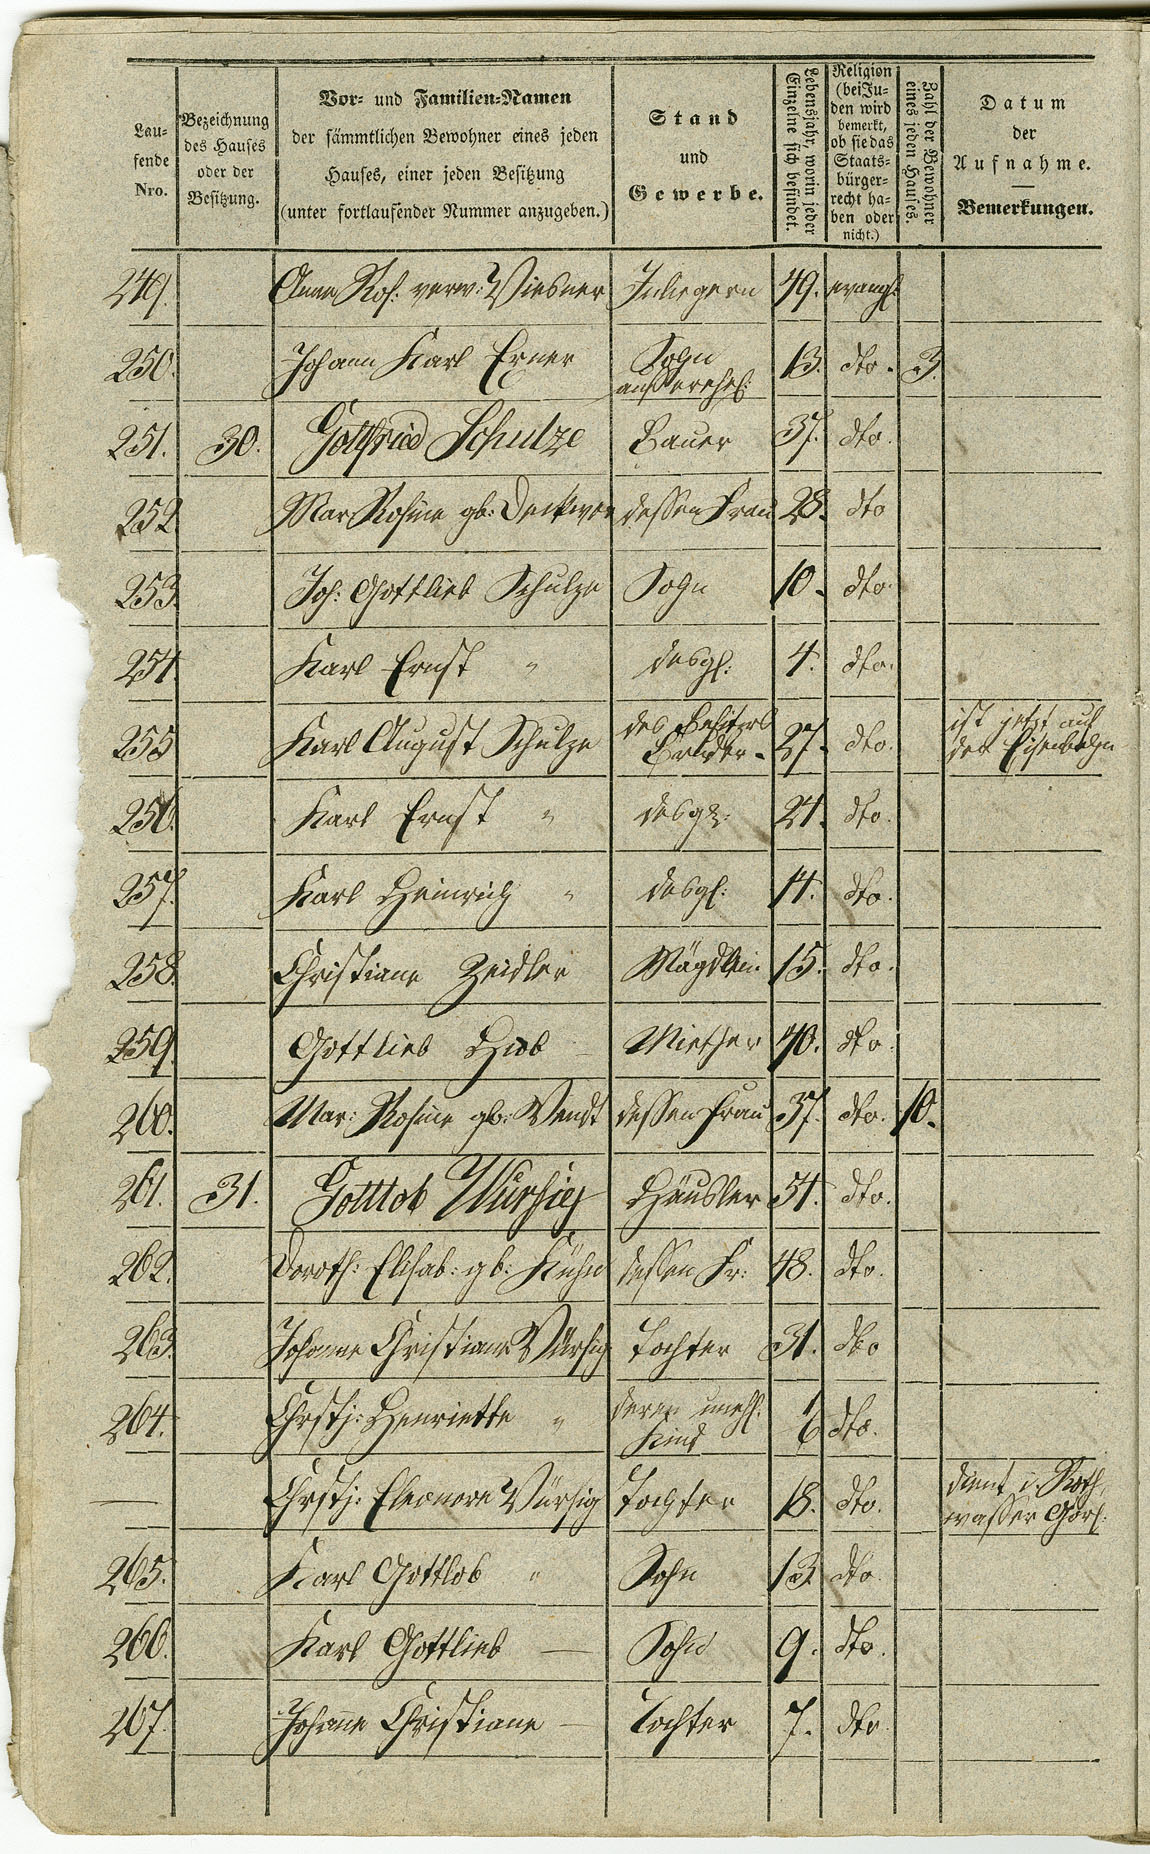 Lau-
fende
Nro.
Bezeichnung
des Hauses
oder der
Besitzung.
Vor- und Familien-Namen
der sämmtlichen Bewohner eines jeden
Hauses, einer jeden Besitzung
(unter fortlaufender Nummer anzugeben.)
Stand
und
Gewerbe.
Lebensjahr, worin jeder
Einzelne sich befindet.
Religion
(bei Ju-
den wird
bemerkt,
ob sie das
Staats-
bürger-
recht ha-
ben oder
nicht.)
Zahl der Bewohner
eines jeden Hauses.
Datum
der
Aufnahme.
Bemerkungen.
249. Anna Ros: verw: 49. evangl:
250. Johann Karl Exner Sohn 13. dto. 3.
außerehel:
251. 30. Gottfried Schulze Bauer 37. dto.
252 Mar Rosine gb: dessen Frau 28. dto
253. Joh: Gottlieb Schulze Sohn 10. dto.
254 Karl Ernst " desgl: 4. dto.
255 Karl August Schulze des Besitzers Bruder 27. dto. ist jetzt auf
der Eisenbahn
256. Karl Ernst " desgl: 24. dto.
257. Karl Heinrich " desgl: 14. dto.
258. Christiane Zeidler 15. dto.
259. Gottlieb Hiob Miether 40. dto.
260. Mar: Rosine gb: Wendt dessen Frau 37. dto. 10.
261. 31. Gottlob Würsig Häusler 54. dto.
262. Doroth: Elisab: gb: Kühn dessen Fr: 48. dto.
263. Johanne Christiane Würsig Tochter 31. dto
264. Chrstj: Henriette " deren unehl: 1/6 dto.
Kind
— Chrstj: Eleonore Würsig Tochter 18. dto. dient i. Roth-
wasser Görl:
265. Karl Gottlob " Sohn 13 dto.
266. Karl Gottlieb — Sohn 9. dto.
267. Johanne Christiane — Tochter 7. dto